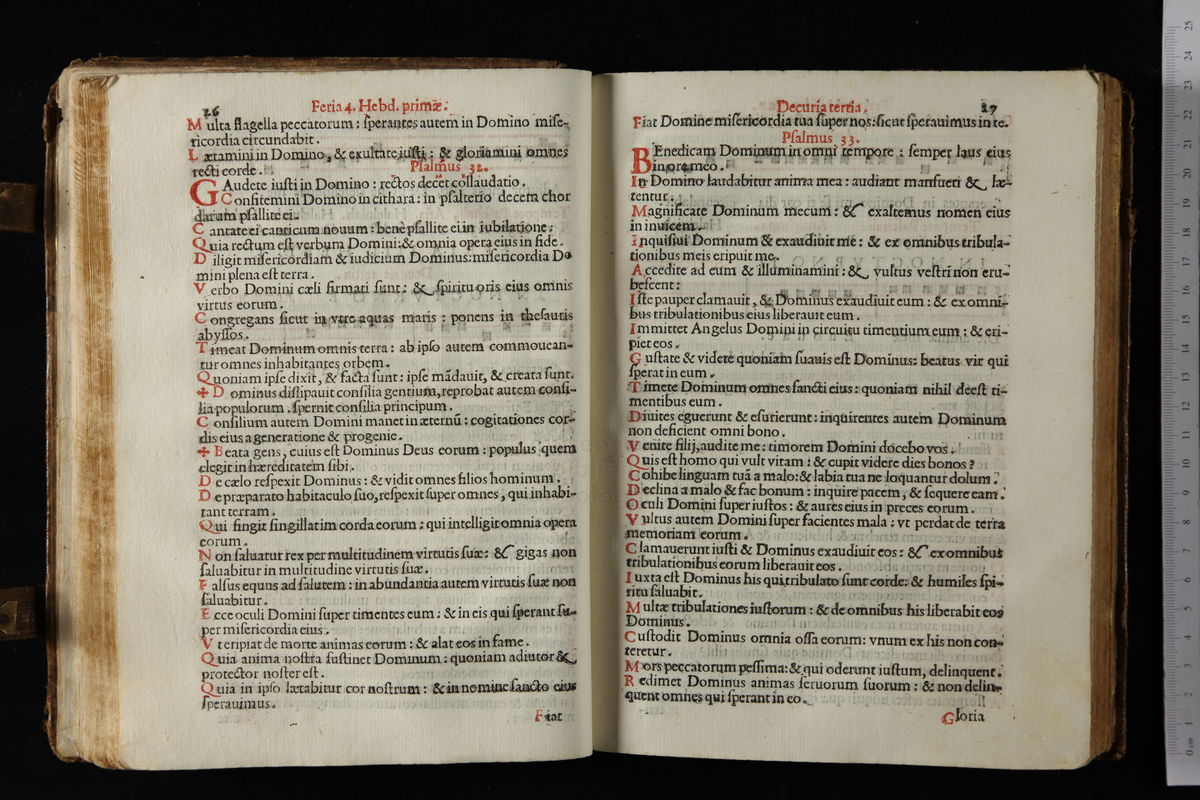 26
Feria 4. Hebd. primæ.
Multa flagella peccatorum : ſperantes autem in Domino miſe-
ricordia circundabit.
Lætamini in Domino, & exultate iuſti : & gloriamini omnes
recti corde.
Pſalmus 32.
GAudete iuſti in Domino : rectos decet collaudatio.
Confitemini Domino in cithara : in pſalterio decem chor
darum pſallite ei.
Cantate ei canticum nouum : bene pſallite ei in iubilatione:
Quia rectum eſt verbum Domini: & omnia opera eius in fide.
Diligit miſericordiam & iudicium Dominus: miſericordia Do
mini plena eſt terra.
Verbo Domini cæli firmati ſunt: & ſpiritu oris eius omnis
virtus eorum.
Congregans ſicut in vtre aquas maris : ponens in theſauris
abyſſos.
Timeat Dominum omnis terra : ab ipſo autem commouean-
tur omnes inhabitantes orbem.
Quoniam ipſe dixit, & facta ſunt : ipſe mãdauit, & creata ſunt.
✠ Dominus diſſipauit conſilia gentium, reprobat autem conſi-
lia populorum. ſpernit conſilia principum.
Conſilium autem Domini manet in æternũ : cogitationes cor-
dis eius a generatione & progenie.
✠ Beata gens, cuius eſt Dominus Deus eorum : populus quem
elegit in hæreditatem ſibi.
De cælo reſpexit Dominus : & vidit omnes filios hominum.
De præparato habitaculo ſuo, reſpexit ſuper omnes, qui inhabi-
tant terram.
Qui fingit ſingillatim corda eorum : qui intelligit omnia opera
eorum.
Non ſaluatur rex per multitudinem virtutis ſuæ: & gigas non
ſaluabitur in multitudine virtutis ſuæ.
Falſus equus ad ſalutem : in abundantia autem virtutis ſuæ non
ſaluabitur.
Ecce oculi Domini ſuper timentes eum : & in eis qui ſperant ſu-
per miſericordia eius.
Vt eripiat de morte animas eorum : & alat eos in fame.
Quia anima noſtra ſuſtinet Dominum : quoniam adiutor &
protector noſter eſt.
Quia in ipſo lætabitur cor noſtrum : & in nomine ſancto eius
ſperauimus.
Fiat
Decuria tertia.
27
Fiat Domine miſericordia tua ſuper nos: ſicut ſperauimus in te.
Pſalmus 33.
BEnedicam Dominum in omni tempore : ſemper laus eius
in ore meo.
In Domino laudabitur anima mea : audiant manſueti & læ-
tentur.
Magnificate Dominum mecum : & exaltemus nomen eius
in inuicem.
Inquiſiui Dominum & exaudiuit me : & ex omnibus tribula-
tionibus meis eripuit me.
Accedite ad eum & illuminamini : & vultus veſtri non eru-
beſcent:
Iſte pauper clamauit, & Dominus exaudiuit eum : & ex omni-
bus tribulationibus eius liberauit eum.
Immittet Angelus Domini in circuitu timentium eum : & eri-
piet eos.
Guſtate & videte quoniam ſuauis eſt Dominus: beatus vir qui
ſperat in eum.
Timete Dominum omnes ſancti eius : quoniam nihil deeſt ti-
mentibus eum.
Diuites eguerunt & eſurierunt : inquirentes autem Dominum
non deficient omni bono.
Venite filij, audite me : timorem Domini docebo vos.
Quis eſt homo qui vult vitam : & cupit videre dies bonos?
Cohibe linguam tuã a malo: & labia tua ne loquantur dolum.
Declina a malo & fac bonum : inquire pacem, & ſequere eam.
Oculi Domini ſuper iuſtos : & aures eius in preces eorum.
Vultus autem Domini ſuper facientes mala : vt perdat de terra
memoriam eorum.
Clamauerunt iuſti & Dominus exaudiuit eos : & ex omnibus
tribulationibus eorum liberauit eos.
Iuxta eſt Dominus his qui tribulato ſunt corde: & humiles ſpi-
ritu ſaluabit.
Multæ tribulationes iuſtorum : & de omnibus his liberabit eos
Dominus.
Cuſtodit Dominus omnia oſſa eorum: vnum ex his non con-
teretur.
Mors peccatorum peſſima: & qui oderunt iuſtum, delinquent.
Redimet Dominus animas ſeruorum ſuorum : & non delin-
quent omnes qui ſperant in eo.
Gloria